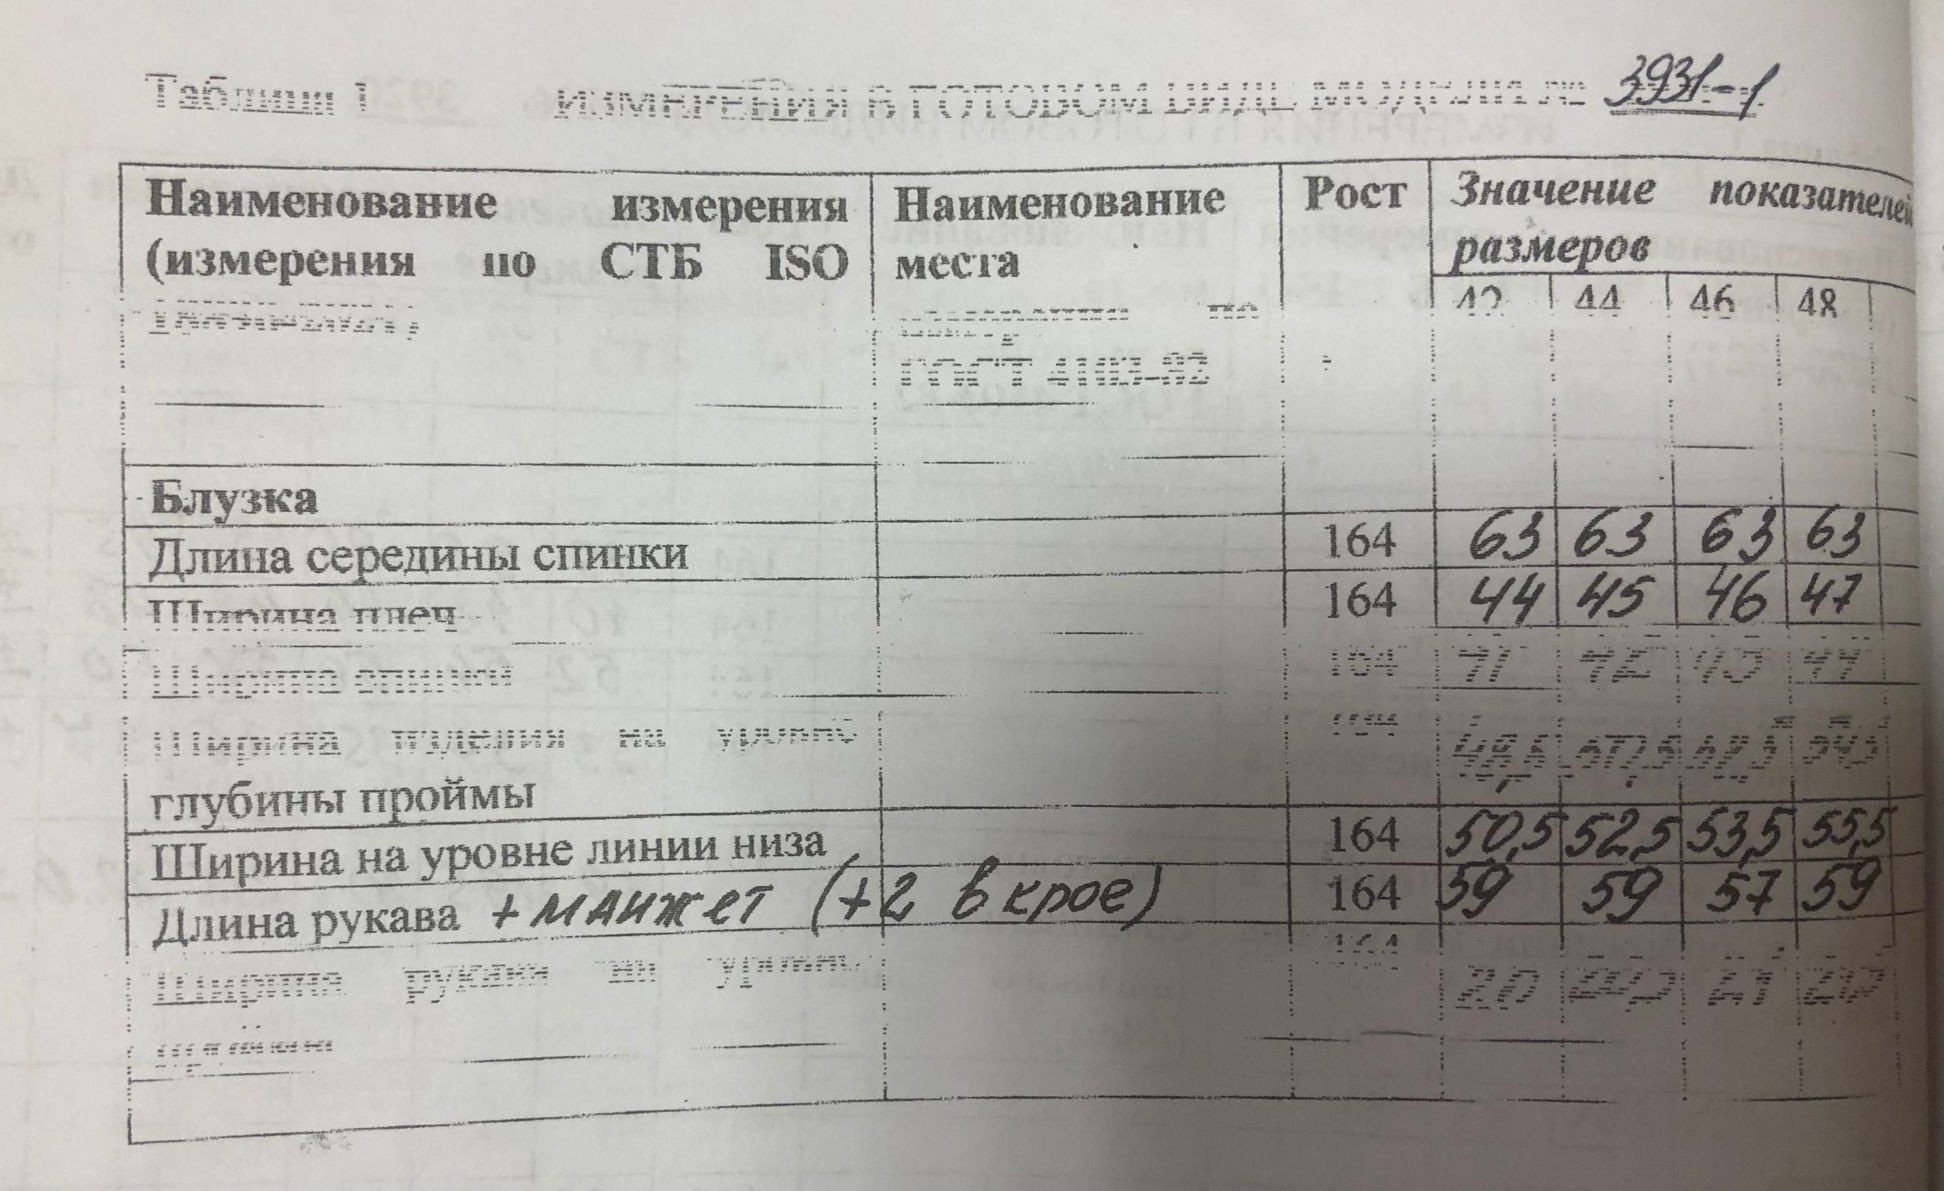 Таблица 1 ИЗМЕРЕНИЯ В ГОТОВОМ ВИДЕ МОДЕЛИ № 3931-1
Наименование измерения Наименование Рост Значение показателей
(измерения по СТБ ISO места размеров
42 44 46 48
измерения по
ГОСТ 4103-82
Блузка
Длина середины спинки 164 63 63 63 63
Ширина плеч 164 44 45 46 47
Ширина спинки 164 41 42 43 44
Ширина изделия на уровне 164
глубины проймы 48,5
Ширина на уровне линии низа 164 50,5 52,5 53,5 55,5
Длина рукава + манжет (+2 в крое) 164 59 59 57 59
Ширина рукава на уровне 164 20
проймы